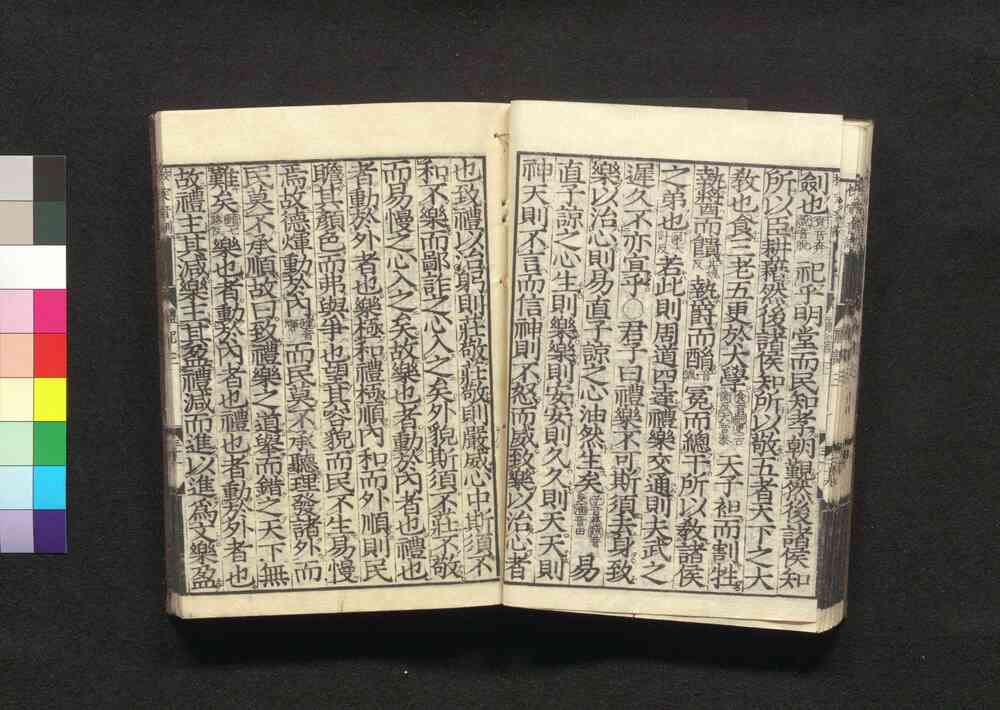 劍也祀乎明堂而民知孝朝覲然後諸侯知
所以臣耕藉然後諸侯知所以敬五者天下之大
敎也食三老五更於大學天子袒而割牲
執醬而饋執爵而酳冕而總干所以敎諸侯
之弟也若此則周道四達禮樂交通則夫武之
遲久不亦宜乎○君子曰禮樂不可斯須去身致
樂以治心則易直子諒之心油然生矣易
直子諒之心生則樂樂則安安則久久則天天則
神天則不言而信神則不怒而威致樂以治心者
也致禮以治躬則莊敬莊敬則嚴威心中斯須不
和不樂而鄙詐之心入之矣外貌斯須不莊不敬
而易慢之心入之矣故樂也者動於內者也禮也
者動於外者也樂極和禮極順內和而外順則民
瞻其顏色而弗與爭也望其容貌而民不生易慢
焉故德煇動於內而民莫不承聽理發諸外而
民莫不承順故曰致禮樂之道舉而錯之天下無
難矣樂也者動於內者也禮也者動於外者也
故禮主其減樂主其盈禮減而進以進爲文樂盈